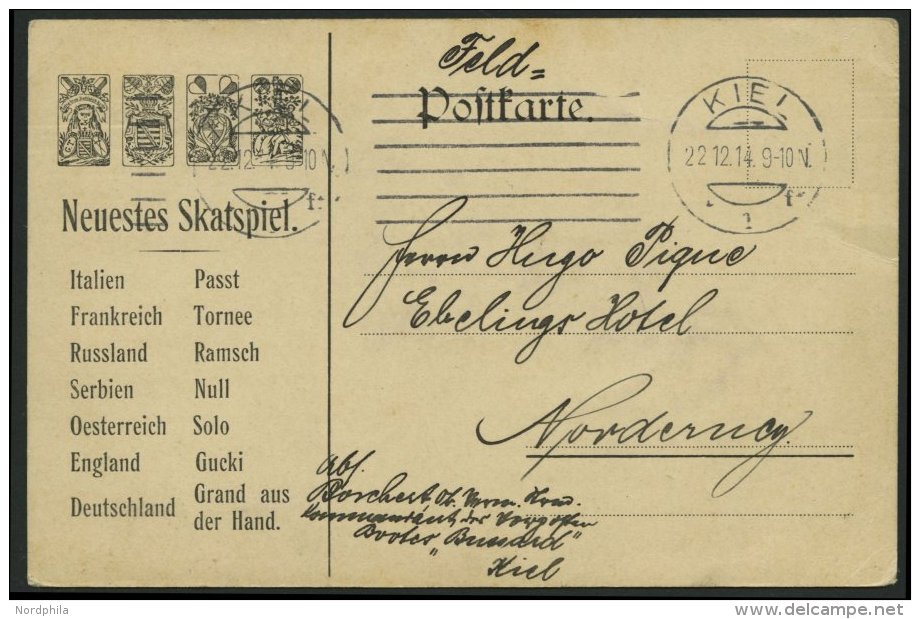 Feld=
Postkarte.
KIEL
22.12.14. 9-10 N.
1 f
KIEL
22.12.14. 9-10 N.
f
Neuestes Skatspiel.
Italien Passt
Frankreich Tornee
Russland Ramsch
Serbien Null
Oesterreich Solo
England Gucki
Deutschland Grand aus
der Hand.
Herrn Hugo Pique
Ebelings Hotel
Norderney.
Abs.
Borchert
Kommandant des Vorposten
Bootes "Bussard"
Kiel
Nordphila
delcampe.net